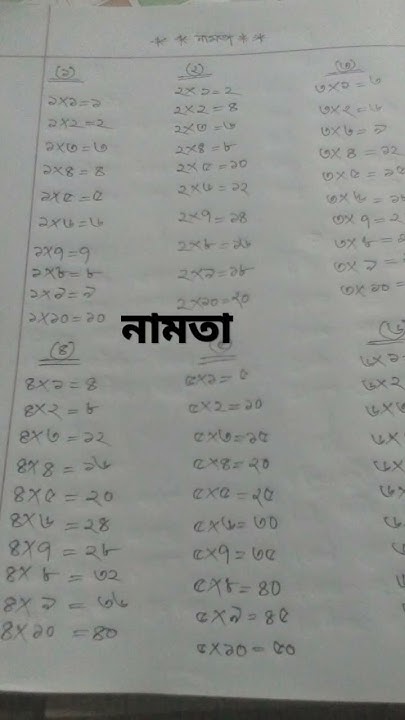 * * নামতা * *
(১)
১×১=১
১×২=২
১×৩=৩
১×৪=৪
১×৫=৫
১×৬=৬
১×৭=৭
১×৮=৮
১×৯=৯
১×১০=১০
(২)
২×১=২
২×২=৪
২×৩=৬
২×৪=৮
২×৫=১০
২×৬=১২
২×৭=১৪
২×৮=১৬
২×৯=১৮
২×১০=২০
(৩)
৩×১=৩
৩×২=৬
৩×৩=৯
৩×৪=১২
৩×৫=১৫
৩×৬=১৮
৩×৭=২
৩×৮=২
৩×৯=
৩×১০=
নামতা
(৪)
৪×১=৪
৪×২=৮
৪×৩=১২
৪×৪=১৬
৪×৫=২০
৪×৬=২৪
৪×৭=২৮
৪×৮=৩২
৪×৯=৩৬
৪×১০=৪০
৫×১=৫
৫×২=১০
৫×৩=১৫
৫×৪=২০
৫×৫=২৫
৫×৬=৩০
৫×৭=৩৫
৫×৮=৪০
৫×৯=৪৫
৫×১০=৫০
(৬)
৬×১=
৬×২
৬×৩
৬×
৬×
৬×